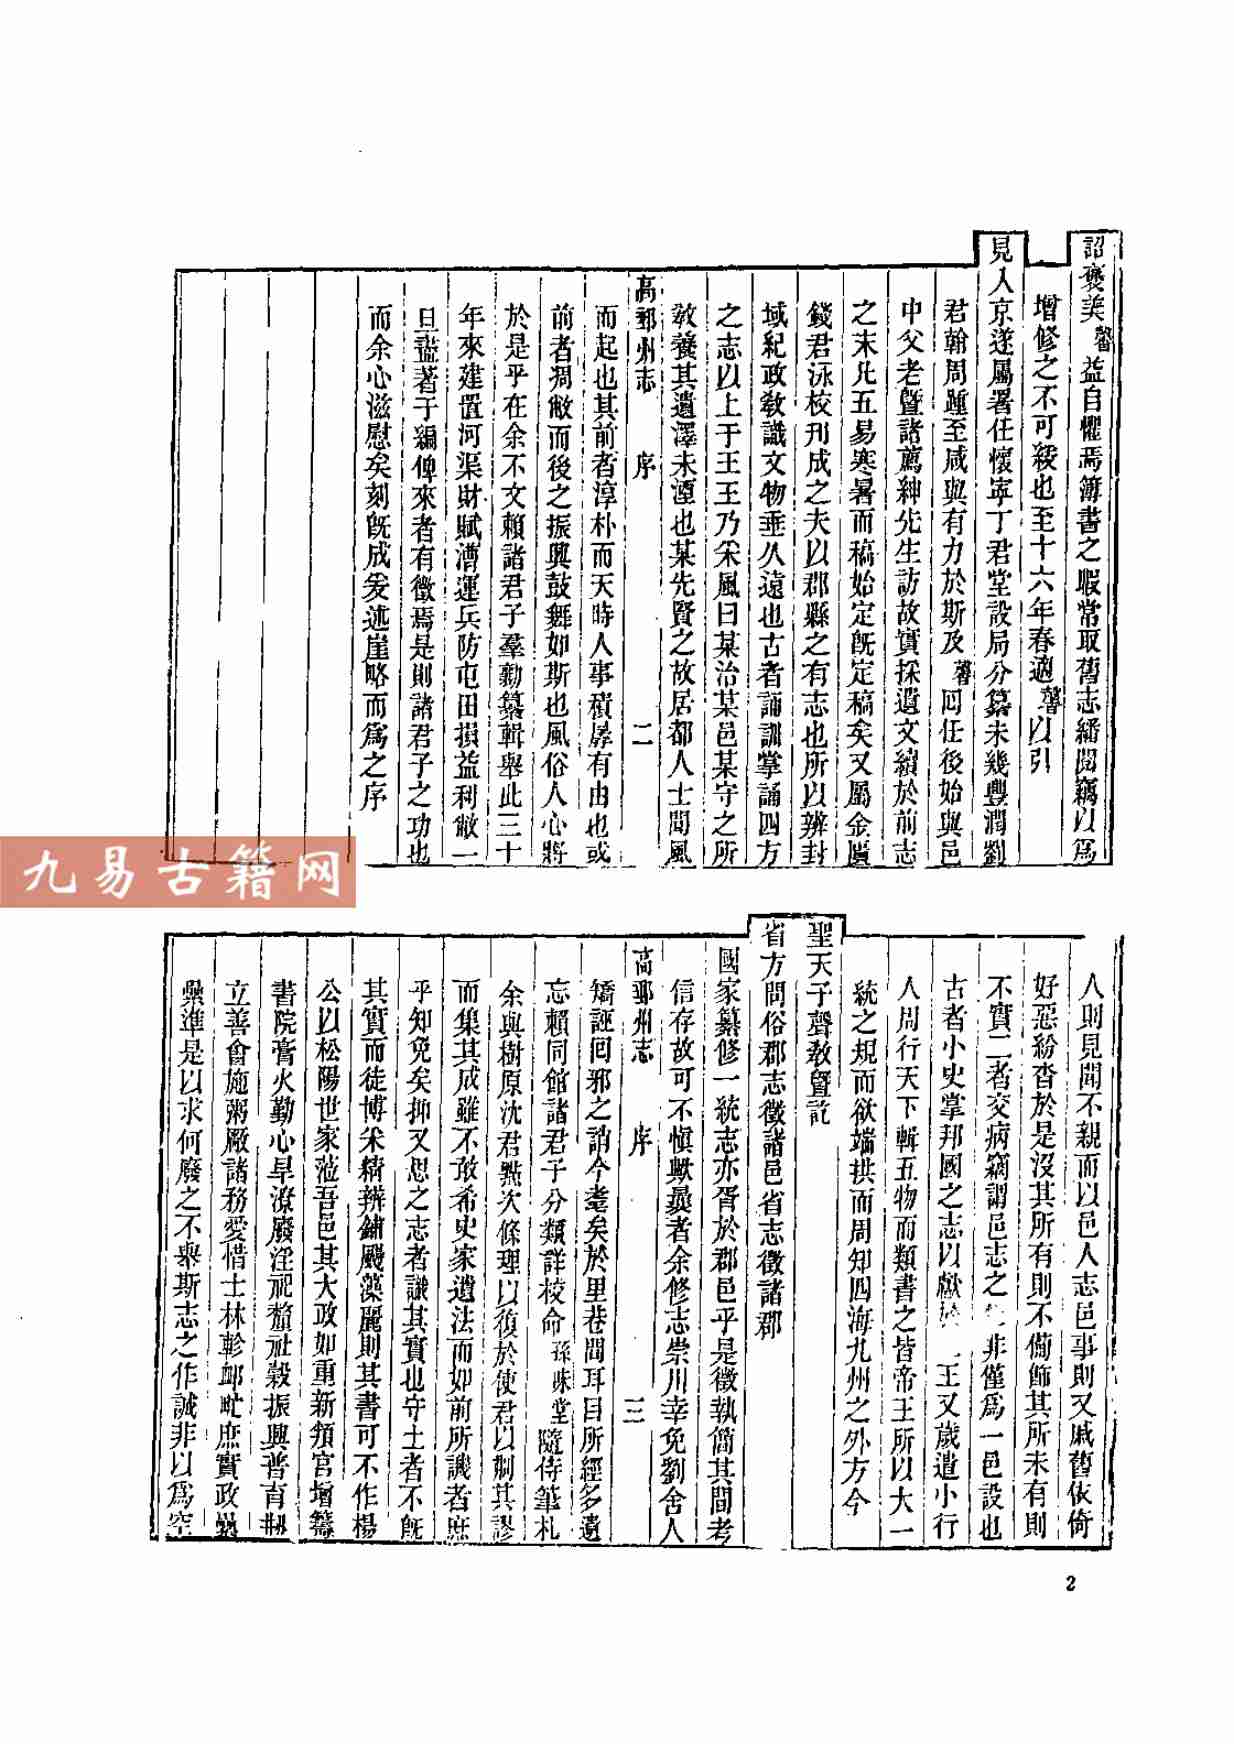 詔褒美馨益自懼焉簿書之暇常取舊志繙閱竊以爲
增修之不可緩也至十六年春適馨以引
見入京遂屬署任懷寧丁君堂設局分纂未幾豐潤劉
君翰周踵至咸與有力於斯及馨囘任後始與邑
中父老曁諸薦紳先生訪故實採遺文續於前志
之末凡五易寒暑而稿始定旣定稿矣又屬金匱
錢君泳校刊成之夫以郡縣之有志也所以辨封
域紀政敎識文物垂久遠也古者誦訓掌誦四方
之志以上于王王乃采風曰某治某邑某守之所
敎養其遺澤未湮也某先賢之故居都人士間風
高郵州志 序 二
而起也其前者淳朴而天時人事積孱有由也或
前者凋敝而後之振興鼓舞如斯也風俗人心將
於是乎在余不文賴諸君子羣勷纂輯舉此三十
年來建置河渠財賦漕運兵防屯田損益利敝一
旦盡著于編俾來者有徵焉是則諸君子之功也
而余心滋慰矣刻旣成爰述崖略而爲之序
人則見聞不親而以邑人志邑事則又戚舊依倚
好惡紛沓於是沒其所有則不備飾其所未有則
不實二者交病竊謂邑志之 非僅爲一邑設也
古者小史掌邦國之志以獻於 王又歲遣小行
人周行天下輯五物而類書之皆帝王所以大一
統之規而欲端拱而周知四海九州之外方今
聖天子聲敎曁訖
省方問俗郡志徵諸邑省志徵諸郡
國家纂修一統志亦胥於郡邑乎是徵執簡其間考
信存故可不愼歟曩者余修志崇川幸免劉舍人
高郵州志 序 三
矯誣囘邪之誚今耄矣於里巷間耳目所經多遺
忘賴同館諸君子分類詳校命孫味堂隨侍筆札
余與樹原沈君㸃次條理以復於使君以刪其謬
而集其成雖不敢希史家遺法而如前所譏者庶
乎知免矣抑又思之志者識其實也守土者不旣
其實而徒博采精辨鋪颺藻麗則其書可不作楊
公以松陽世家蒞吾邑其大政如重新頖宮增籌
書院膏火勤心旱潦廢淫祀釐祉穀振興普育
立善會施粥厰諸務愛惜士林軫䘏甿庶實政
槼準是以求何廢之不舉斯志之作誠非以爲空
2
九易古籍网